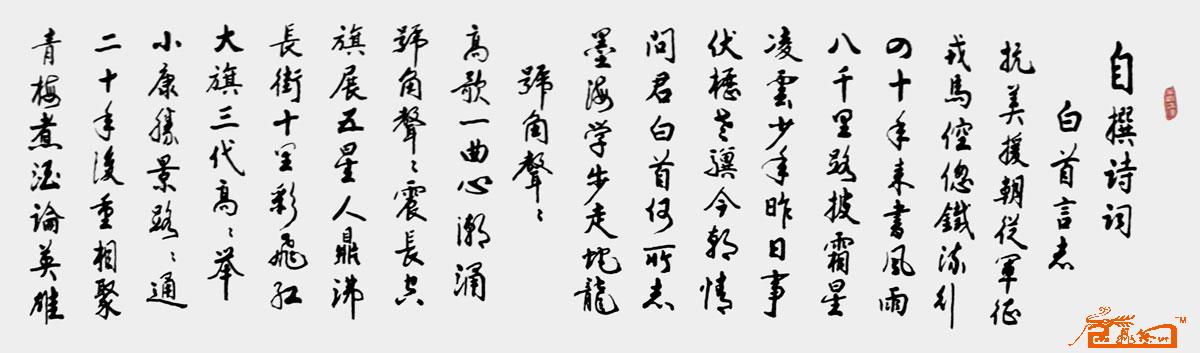 自撰诗词
白首言志
抗美援朝从军征
戎馬倥偬鐵流行
四十年来書風雨
八千里路披霜星
凌雲少年昨日事
伏櫪老驥今朝情
問君白首何所志
墨海学步走蛇龍
號角聲聲
高歌一曲心潮涌
號角聲聲震長空
旗展五星人鼎沸
長街十里彩飛紅
大旗三代高高举
小康勝景路路通
二十年後重相聚
青梅煮酒論英雄